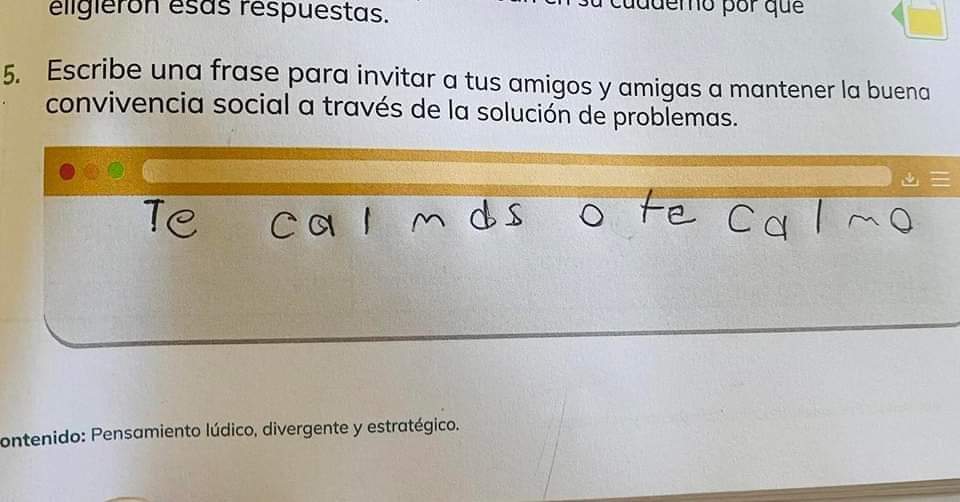 eligieron esas respuestas.
su cuaderno por qué
5. Escribe una frase para invitar a tus amigos y amigas a mantener la buena
convivencia social a través de la solución de problemas.
Te calmas o te calmo
ontenido: Pensamiento lúdico, divergente y estratégico.